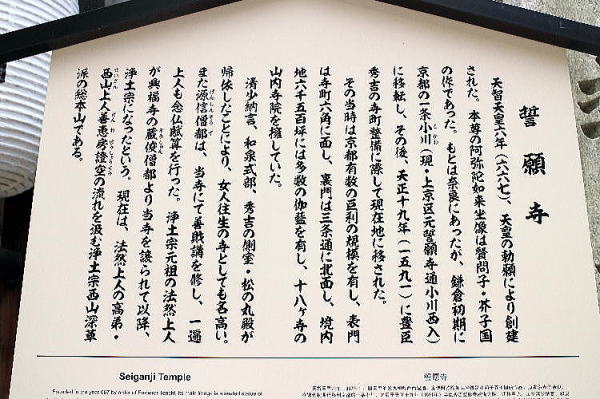 誓願寺
天智天皇六年（六六七）、天皇の勅願により創建
された。本尊の阿弥陀如来坐像は賢問子・芥子国
の作であった。もとは奈良にあったが、鎌倉初期に
京都の一条小川（現・上京区元誓願寺通小川西入）
に移転し、その後、天正十九年（一五九一）に豊臣
秀吉の寺町整備に際して現在地に移された。
その当時は京都有数の巨刹の規模を有し、表門
は寺町六角に面し、裏門は三条通に北面し、境内
地六千五百坪には多数の伽藍を有し、十八ヶ寺の
山内寺院を擁していた。
清少納言、和泉式部、秀吉の側室・松の丸殿が
帰依したことにより、女人往生の寺としても名高い。
また源信僧都は、当寺にて善財講を修し、一遍
上人も念仏賦算を行った。浄土宗元祖の法然上人
が興福寺の蔵俊僧都より当寺を譲られて以降、
浄土宗になったという。現在は、法然上人の高弟・
西山上人善恵房證空の流れを汲む浄土宗西山深草
派の総本山である。
Seiganji Temple
誓愿寺